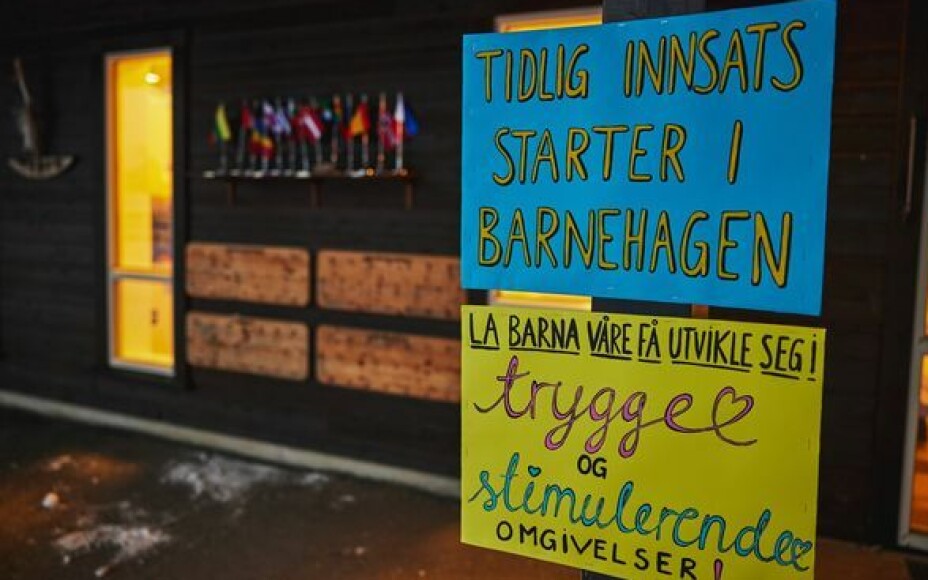 TIDLIG INNSATS
STARTER I
BARNEHAGEN
LA BARNA VÅRE FÅ UTVIKLE SEG!
trygge
OG
stimulerende
OMGIVELSER!